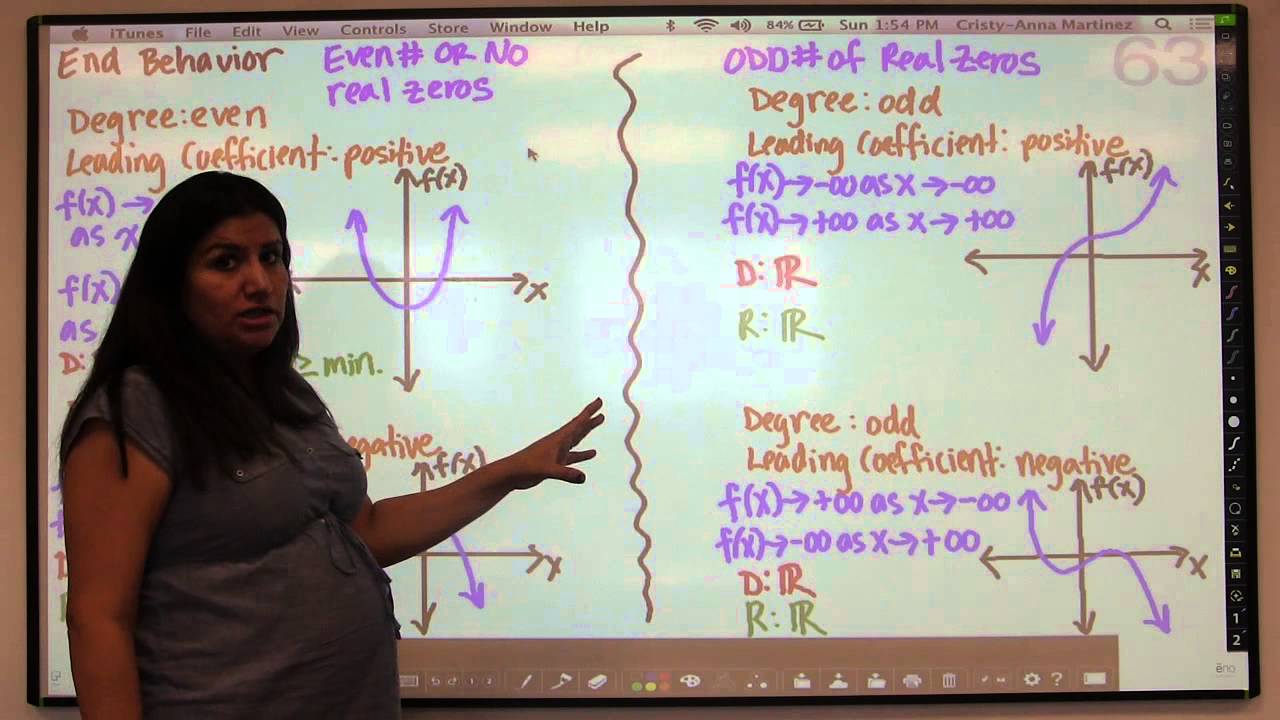 iTunes File Edit View Controls Store Window Help 84% Sun 1:54 PM Cristy-Anna Martinez
63
End Behavior
Even# OR No
real zeros
Degree: even
Leading Coefficient: positive
f(x) →
as x
f(x)
as
D:
≥ min.
f(x)
x
egative
f(x)
x
ODD# of Real Zeros
Degree: odd
Leading Coefficient: positive
f(x) → -∞ as x → -∞
f(x) → +∞ as x → +∞
D: ℝ
R: ℝ
f(x)
x
Degree: odd
Leading Coefficient: negative
f(x) → +∞ as x → -∞
f(x) → -∞ as x → +∞
D: ℝ
R: ℝ
f(x)
x
1
2
eno